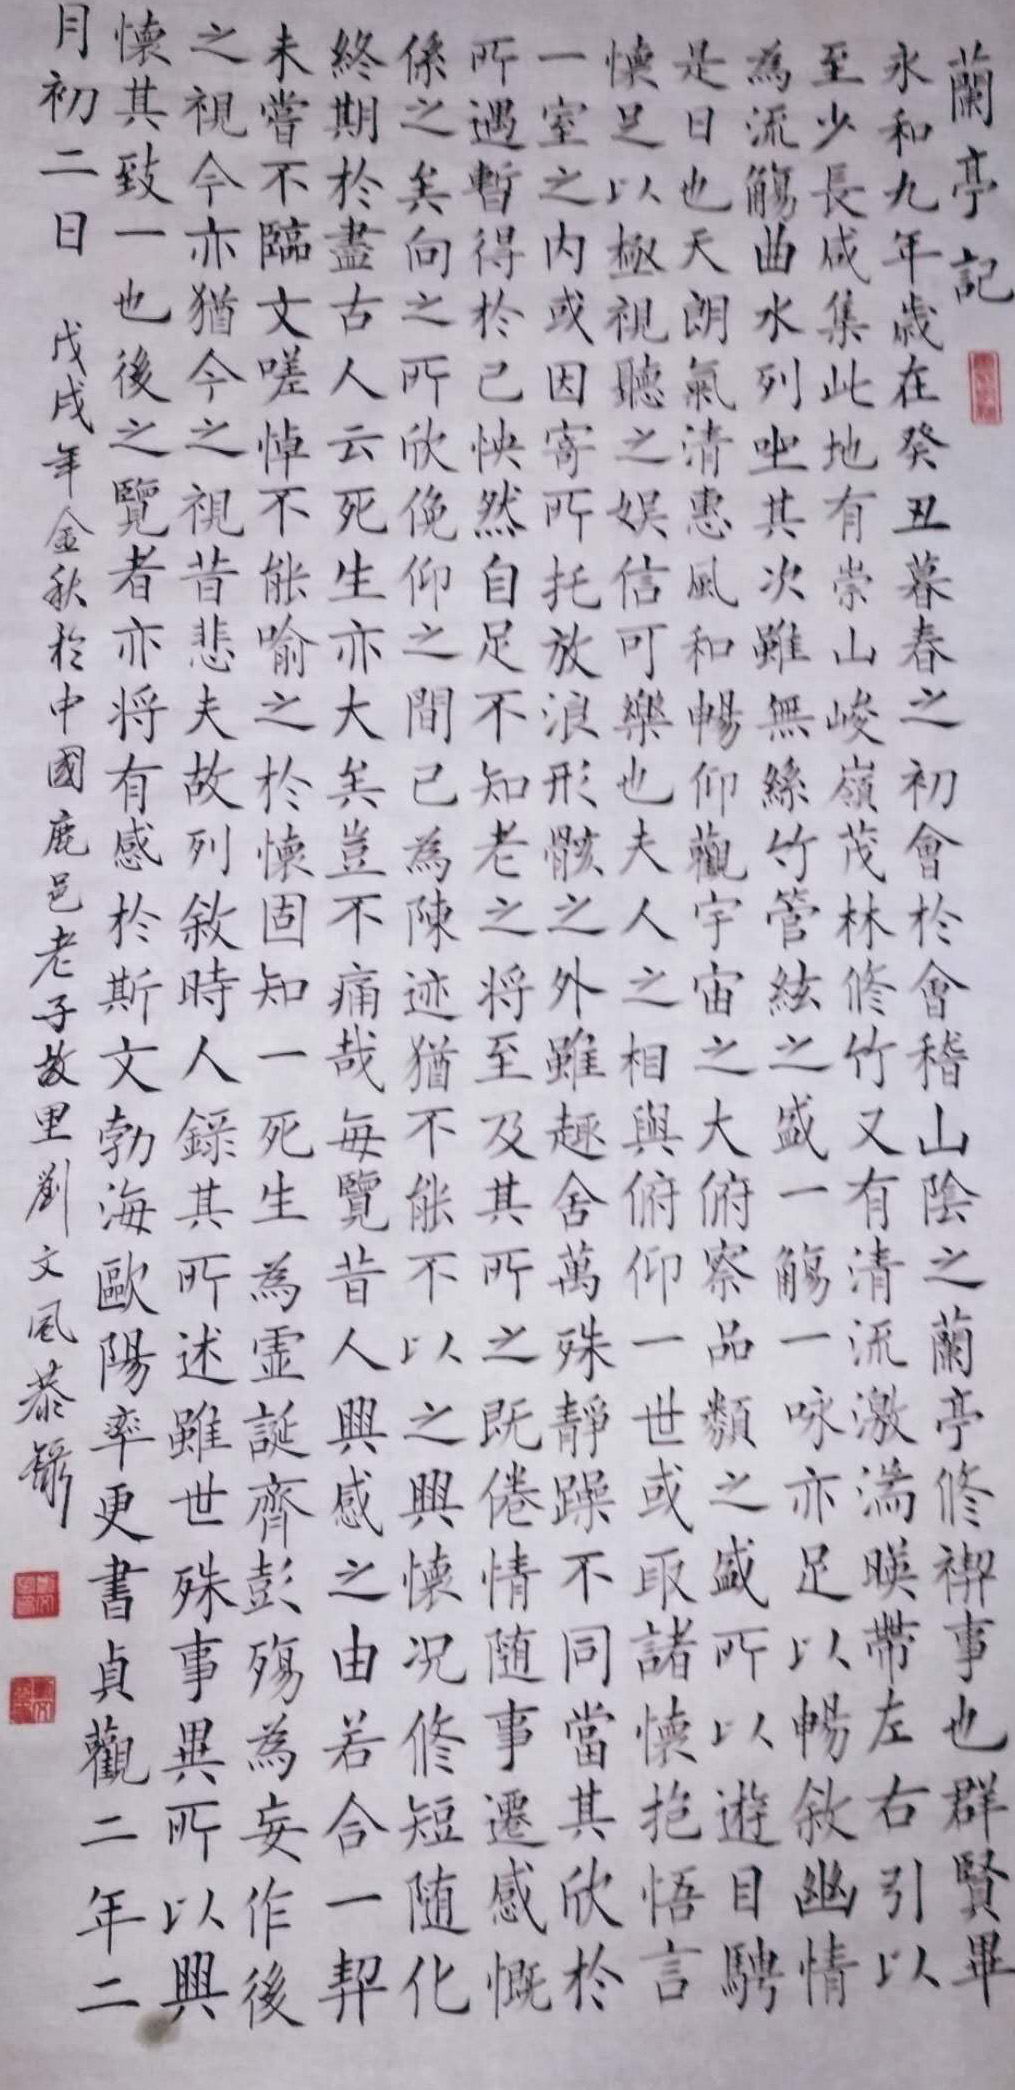 蘭亭記
永和九年歲在癸丑暮春之初會於會稽山陰之蘭亭修禊事也群賢畢
至少長咸集此地有崇山峻嶺茂林修竹又有清流激湍暎帶左右引以
為流觴曲水列坐其次雖無絲竹管絃之盛一觴一咏亦足以暢敘幽情
是日也天朗氣清惠風和暢仰觀宇宙之大俯察品類之盛所以遊目騁
懷足以極視聽之娛信可樂也夫人之相與俯仰一世或取諸懷抱悟言
一室之内或因寄所托放浪形骸之外雖趣舍萬殊靜躁不同當其欣於
所遇暫得於己怏然自足不知老之将至及其所之既倦情随事遷感慨
係之矣向之所欣俛仰之間已為陳迹猶不能不以之興懷况修短随化
終期於盡古人云死生亦大矣豈不痛哉每覽昔人興感之由若合一契
未嘗不臨文嗟悼不能喻之於懷固知一死生為虛誕齊彭殤為妄作後
之視今亦猶今之視昔悲夫故列敘時人錄其所述雖世殊事異所以興
懷其致一也後之覽者亦将有感於斯文勃海歐陽率更書貞觀二年二
月初二日 戊戌年金秋於中國鹿邑老子故里劉文風恭錄